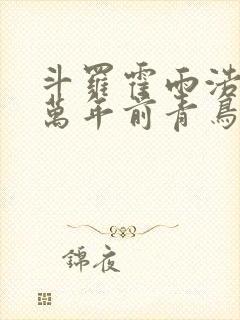 斗羅霍雨浩
萬年前青鳥
錦夜